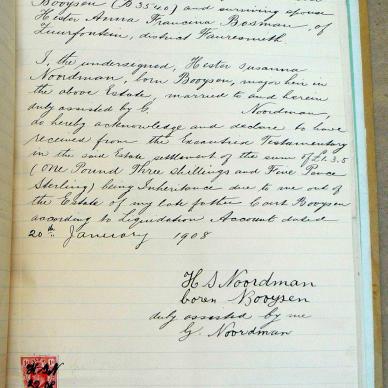 Booysen (B3540) and surviving spouse
Hester Anna Francina Bosman, of
Zuurfontein, district Fauresmith.
I, the undersigned, Hester Susanna
Noordman, born Booysen, major heir in
the above Estate, married to and herein
duly assisted by G. Noordman,
do hereby acknowledge and declare to have
received from the Executrix Testamentary
in the said Estate settlement of the sum of £1.3.5
(One Pound Three Shillings and Five Pence
Sterling) being Inheritance due to me out of
the Estate of my late father Coert Booysen
according to Liquidation Account dated
20th January 1908
H S Noordman
boren Booysen
duly assisted by me
G. Noordman
H.S.N